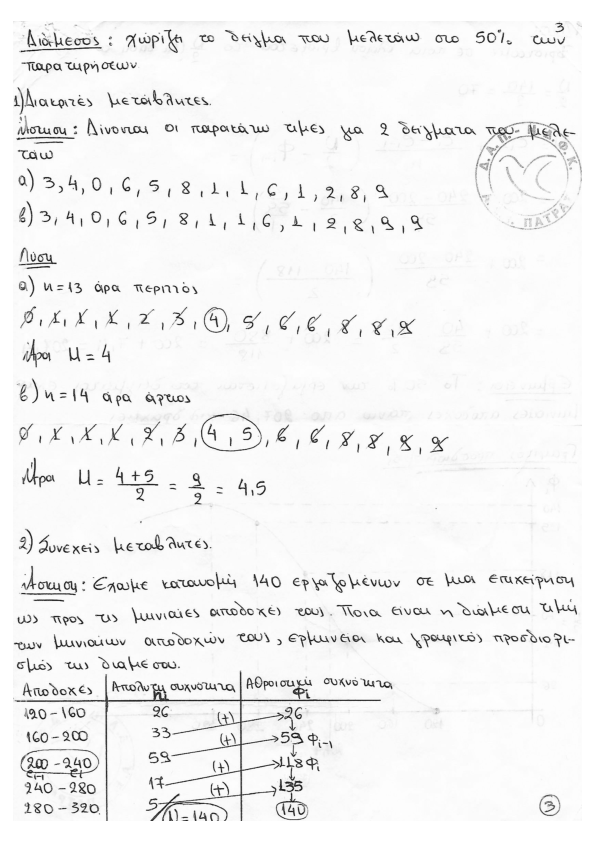 3
Διάμεσος : χωρίζει το δείγμα που μελετάω στο 50% των
παρατηρήσεων
1) Διακριτές μεταβλητές.
Άσκηση : Δίνονται οι παρακάτω τιμες για 2 δείγματα που μελε-
τάω
α) 3, 4, 0, 6, 5, 8, 1, 1, 6, 1, 2, 8, 9
β) 3, 4, 0, 6, 5, 8, 1, 1, 6, 1, 2, 8, 9, 9
Λύση
α) n=13 άρα περιττός
0, 1, 1, 1, 2, 3, 4, 5, 6, 6, 8, 8, 9
Άρα M = 4
β) n=14 άρα άρτιος
0, 1, 1, 1, 2, 3, 4, 5, 6, 6, 8, 8, 9, 9
Άρα M = 4+5/2 = 9/2 = 4,5
2) Συνεχείς μεταβλητές.
Άσκηση : Έχουμε κατανομή 140 εργαζομένων σε μια επιχείρηση
ως προς τις μηνιαίες αποδοχές τους. Ποια είναι η διάμεση τιμή
των μηνιαίων αποδοχών τους, ερμηνεία και γραφικός προσδιορι-
σμός της διαμεσου.
Αποδοχες Απολυτη συχνότητα ni Αθροιστική συχνότητα Φi
120-160 26 26
160-200 33 (+) 59 Φi-1
200-240 59 (+) 118 Φi
ei-1 ei
240-280 17 (+) 135
280-320 5 (+) 140
N=140
3
Δ.Α.Π. - Ν.Δ.Φ.Κ.
ΠΑΤΡΑΣ